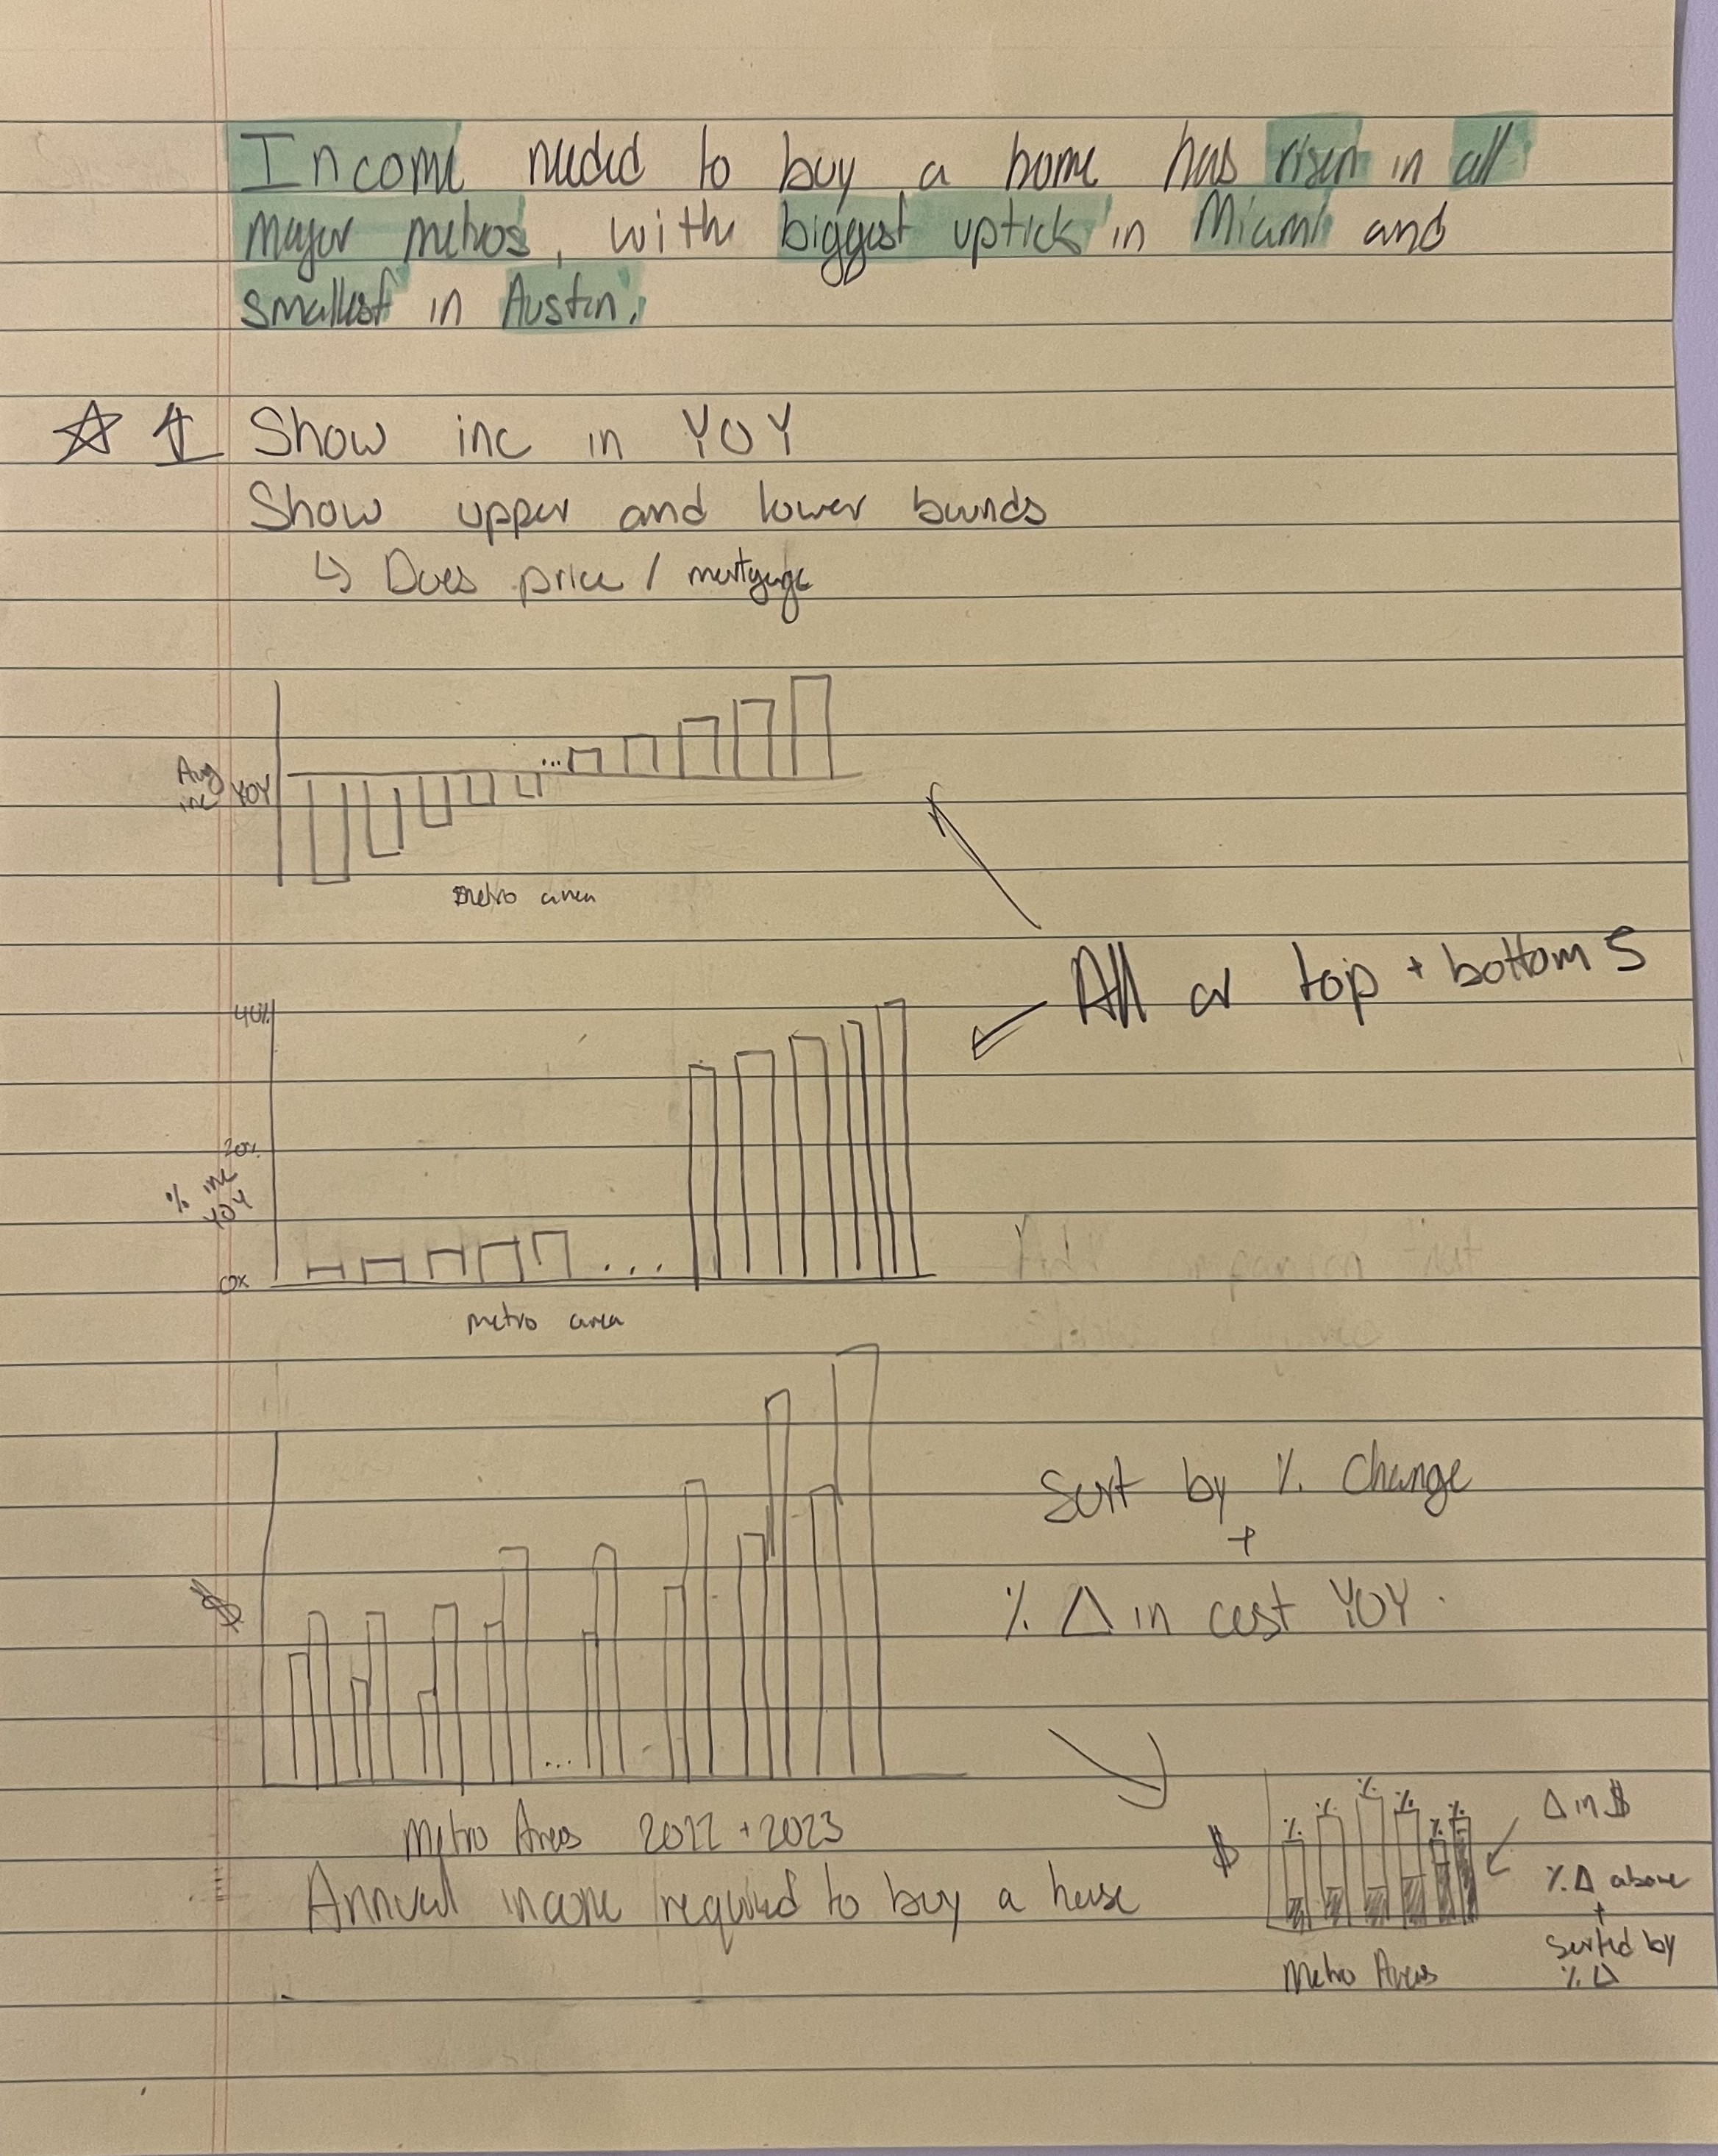 Income needed to buy a home has risen in all
major metros, with biggest uptick in Miami and
smallest in Austin.
Show inc in YOY
Show upper and lower bounds
↳ Does price / mortgage
Avg
inc YOY
Metro area
All or top + bottom 5
40%
20%
% inc
YOY
0%
metro area
Sort by % Change
+
% Δ in cost YOY.
$
Metro Areas 2022 + 2023
Annual income required to buy a house
% % % % % %
$
Metro Areas
Δ in $
% Δ above
+
Sorted by
% Δ